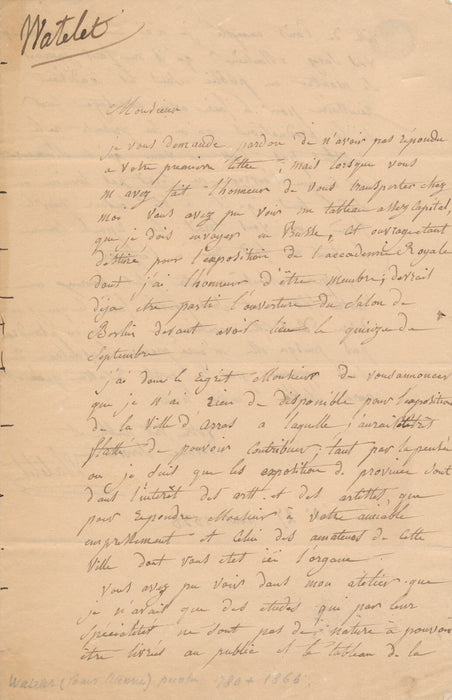 Watelet
Monsieur
je vous demande pardon de n'avoir pas répondu
a votre premiere lettre, mais lorsque vous
m'avez fait l'honneur de vous transporter chez
moi vous avez pu voir un tableau assez Capital,
que je dois envoyer en Prusse, cet ouvrage étant
destiné pour l'exposition de l'accadémie Royale
dont j'ai l'honneur d'être membre, devrait
déja etre parti l'ouverture du Salon de
Berlin devant avoir lieu le quinze de
Septembre
j'ai donc le regret Monsieur de vous annoncer
que je n'ai rien de disponible pour l'exposition
de la Ville d'arras a laquelle j'aurai été très
flatté de pouvoir contribuer, tant par la pensée
ou je suis que les exposition de province sont
dans l'intérêt des arts et des artistes, que
pour répondre Monsieur à votre aimable
empressement et celui des amateurs de cette
Ville dont vous etes ici l'organe.
vous avez pu voir dans mon atelier que
je n'avais que des études qui par leur
spécialités ne sont pas de nature à pouvoir
être livrés au public et le tableau de la
Watelet (Louis Etienne) peintre 1780 + 1866